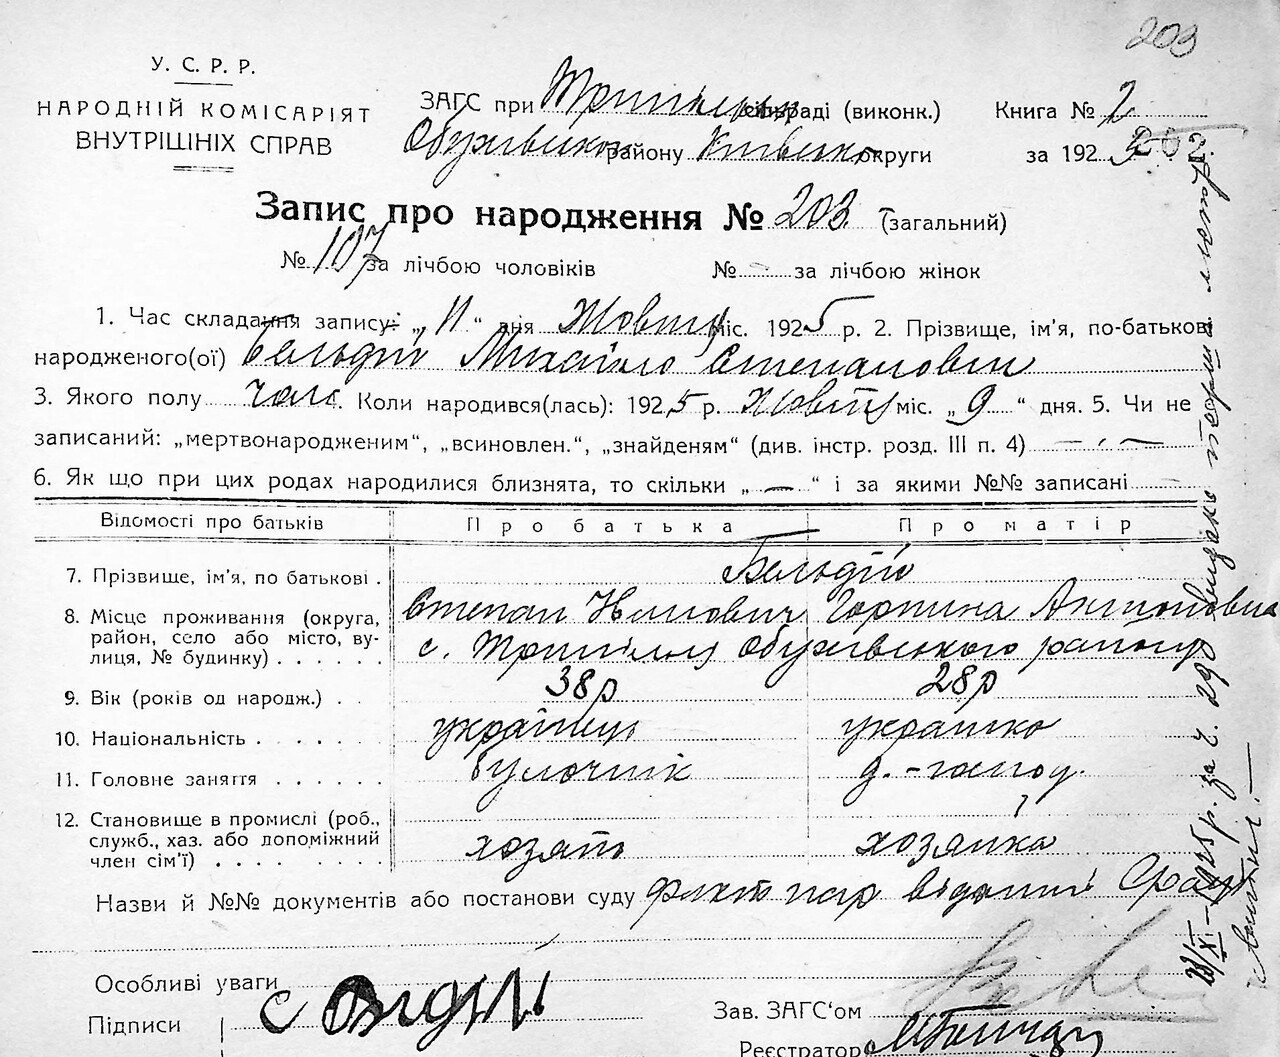 203
У. С. Р. Р.
НАРОДНІЙ КОМІСАРІЯТ
ВНУТРІШНІХ СПРАВ
ЗАГС при Трипільськ сільраді (виконк.) Книга № 2
Обухівськом району Київсько округи за 1925
Запис про народження № 203 (загальний)
№ 107 за лічбою чоловіків № - за лічбою жінок
1. Час складання запису: „11“ дня Жовтн міс. 1925 р. 2. Прізвище, ім'я, по-батькові
народженого(ої) Бельдій Михайло Степанович
3. Якого полу чол. Коли народився(лась): 1925 р. Жовтн міс. „9“ дня. 5. Чи не
записаний: „мертвонародженим“, „всиновлен.“, „знайденям“ (див. інстр. розд. III п. 4)
6. Як що при цих родах народилися близнята, то скільки „—“ і за якими №№ записані
Відомості про батьків Про батька Про матір
7. Прізвище, ім'я, по батькові . Бельдій
Степан Горпина Антоновна
8. Місце проживання (округа, район, село або місто, вулиця, № будинку) . . . . . . с. Трипілля Обухівського району
9. Вік (років од народж.) . . 38 р 28 р
10. Національність . . . . . . українець українка
11. Головне заняття . . . . . . булочник д.-господ.
12. Становище в промислі (роб., служб., хаз. або допоміжний член сім'ї) . . . . . . хозяїн хозяйка
Назви й №№ документів або постанови суду
Особливі уваги
Підписи С Билдій
Зав. ЗАГС'ом
Реєстратор
23/XI - 1925 р. за ч. 290 видано